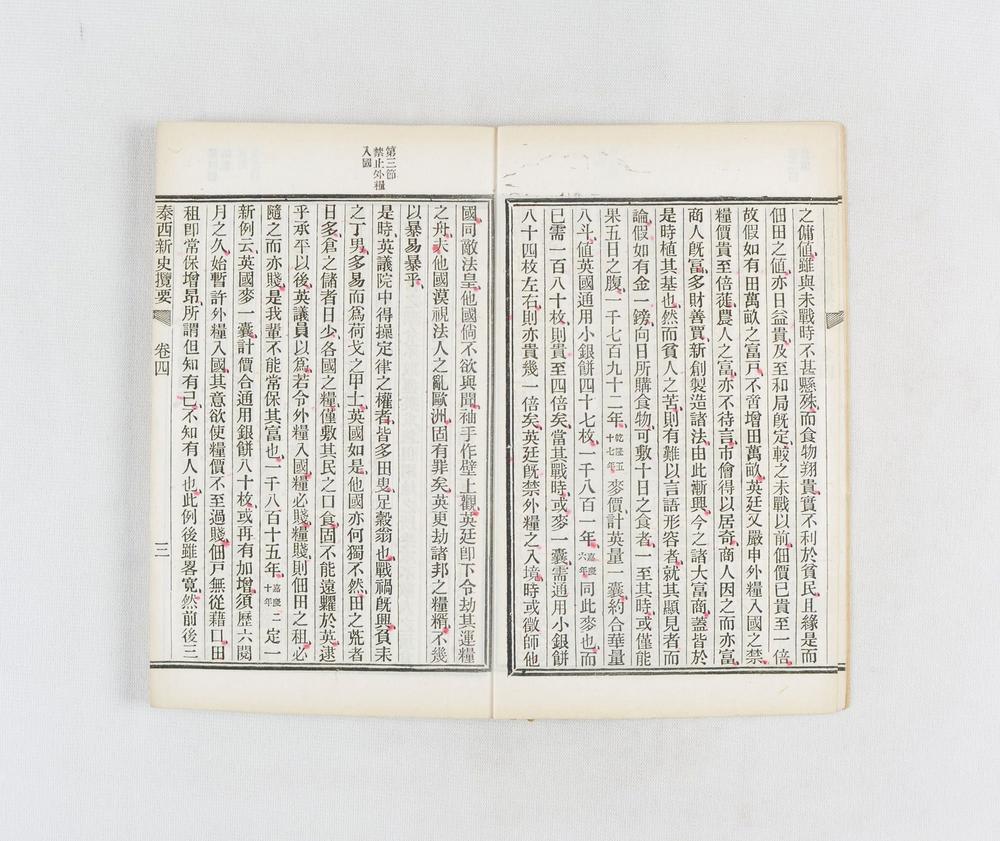 之傭値、雖與未戰時不甚懸殊、而食物翔貴、實不利於貧民、且緣是而
佃田之値、亦日益貴、及至和局旣定、較之未戰以前、佃價已貴至一倍、
故假如有田萬畝之富戸、不啻增田萬畝、英廷又嚴申外糧入國之禁、
糧價貴至倍蓰、農人之富、亦不待言、市儈得以居奇、商人因之而亦富、
商人旣富、多財善賈、新創製造諸法、由此漸興、今之諸大富商、蓋皆於
是時植其基也、然而貧人之苦、則有難以言語形容者、就其顯見者而
論、假如有金一鎊、向日所購食物、可敷十日之食者、一至其時、或僅能
果五日之腹、一千七百九十二年、乾隆五十七年、麥價計英量一囊、約合華量
八斗、値英國通用小銀餅四十七枚、一千八百一年、嘉慶六年、同此麥也、而
已需一百八十枚、則貴至四倍矣、當其戰時、或麥一囊、需通用小銀餅
八十四枚左右、則亦貴幾一倍矣、英廷旣禁外糧之入境、時或徵師他
國、同敵法皇、他國倘不欲與聞、袖手作壁上觀、英廷卽下令劫其運糧
之舟、夫他國漠視法人之亂歐洲、固有罪矣、英更劫諸邦之糧糈、不幾
以暴易暴乎、
第三節
禁止外糧
入國
是時、英議院中得操定律之權者、皆多田叟足穀翁也、戰禍旣興、負耒
之丁男、多易而爲荷戈之甲士、英國如是、他國亦何獨不然、田之荒者
日多、倉之儲者日少、各國之糧、僅敷其民之口食、固不能遠糶於英、逮
乎承平以後、英議員以爲若令外糧入國、糧必賤、糧賤則佃田之租、必
隨之而亦賤、是我輩不能常保其富也、一千八百十五年、嘉慶二十年、定一
新例云、英國麥一囊、計價合通用銀餅八十枚、或再有加增、須歷六閱
月之久、始暫許外糧入國、其意欲使糧價不至過賤、佃戸無從藉口、田
租卽常保增昂、所謂但知有己、不知有人也、此例後雖畧寬、然前後三
泰西新史攬要 卷四 三